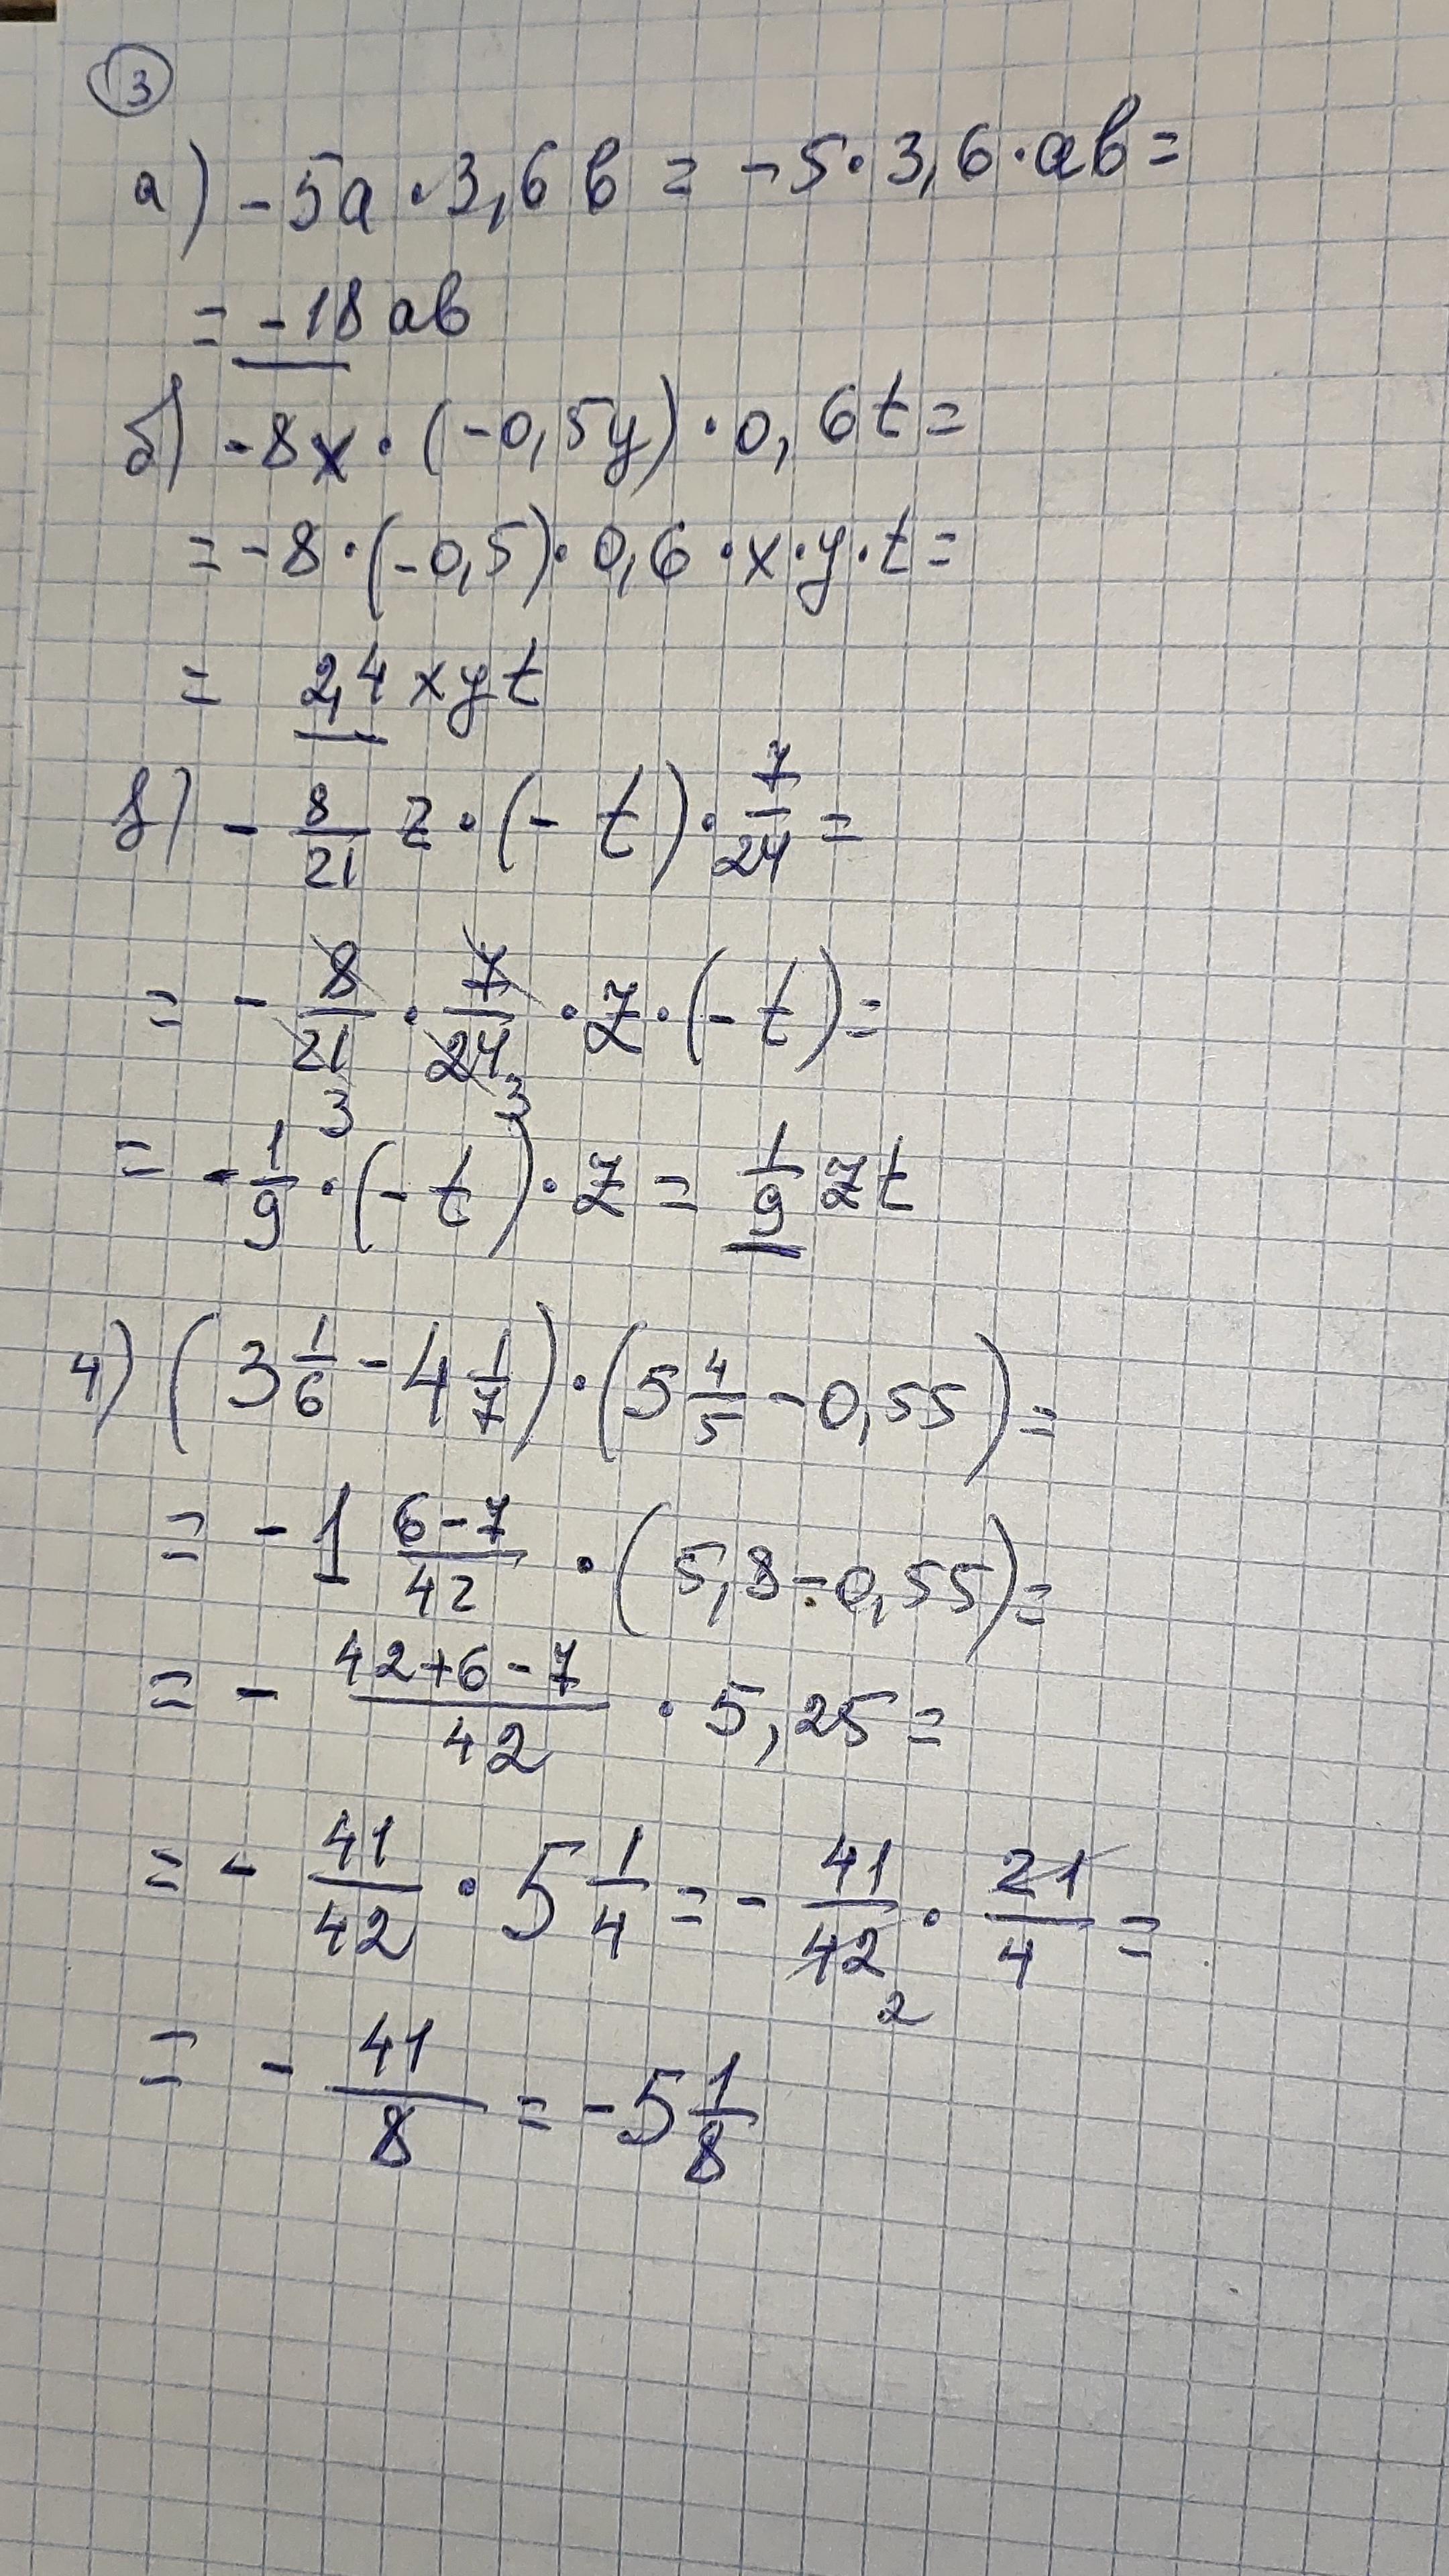 3
а) -5a · 3,6 b = -5 · 3,6 · ab =
= -18 ab
б) -8x · (-0,5y) · 0,6t =
= -8 · (-0,5) · 0,6 · x · y · t =
= 2,4 xyt
в) - 8/21 z · (- t) · 7/24 =
= - 8/21 · 7/24 · z · (- t) =
3 3
= - 1/9 · (- t) · z = 1/9 zt
4) (3 1/6 - 4 1/7) · (5 4/5 - 0,55) =
= -1 6-7/42 · (5,8 - 0,55) =
= - 42+6-7/42 · 5,25 =
= - 41/42 · 5 1/4 = - 41/42 · 21/4 =
2
= - 41/8 = -5 1/8